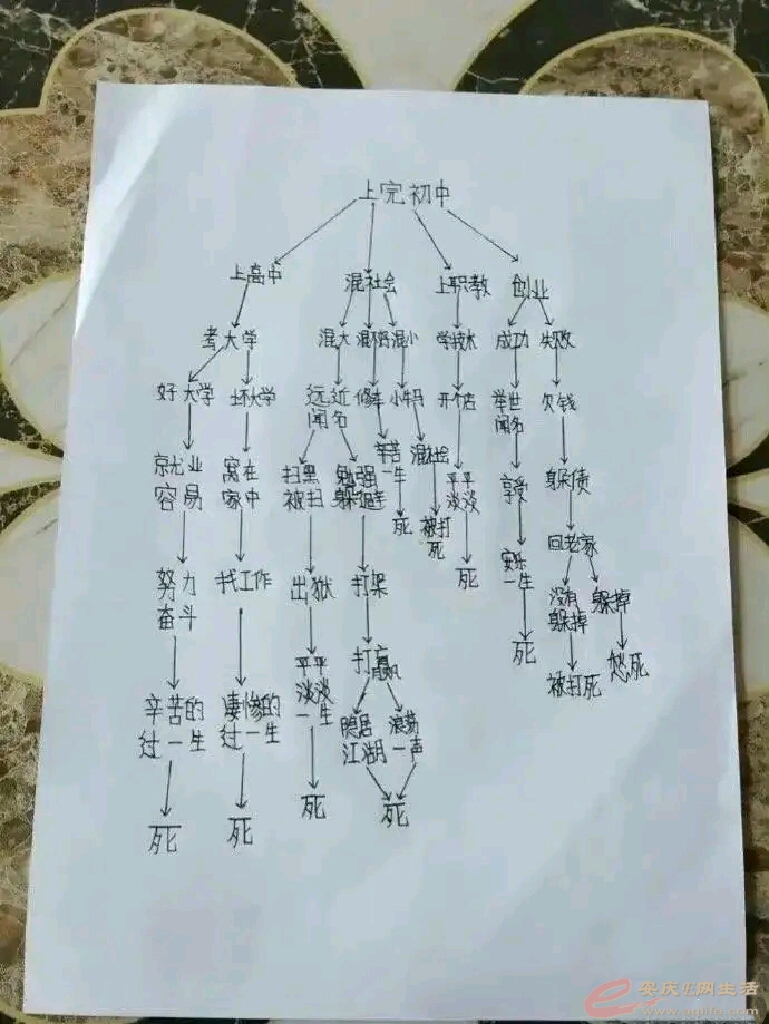 上完初中
上高中 混社会 上职教 创业
考大学 混大 混不好 混小 学技术 成功 失败
好大学 坏大学 远近 修车 小牛马 开个店 举世 欠钱
闻名 闻名
辛苦
就业 窝在 扫黑 勉强 一生 混社会 平平 享受 躲债
容易 家中 被扫 躲避 淡淡
死 被打
死 回老家
努力 找工作 出狱 打架 死 安乐 没有 躲掉
奋斗 一生 躲掉
平平 打赢 死 被打死 愁死
淡淡
辛苦的 凄惨的 一生 隐居 浪荡
过一生 过一生 江湖 一声
死 死 死 死
安庆E网生活
www.aqlife.com